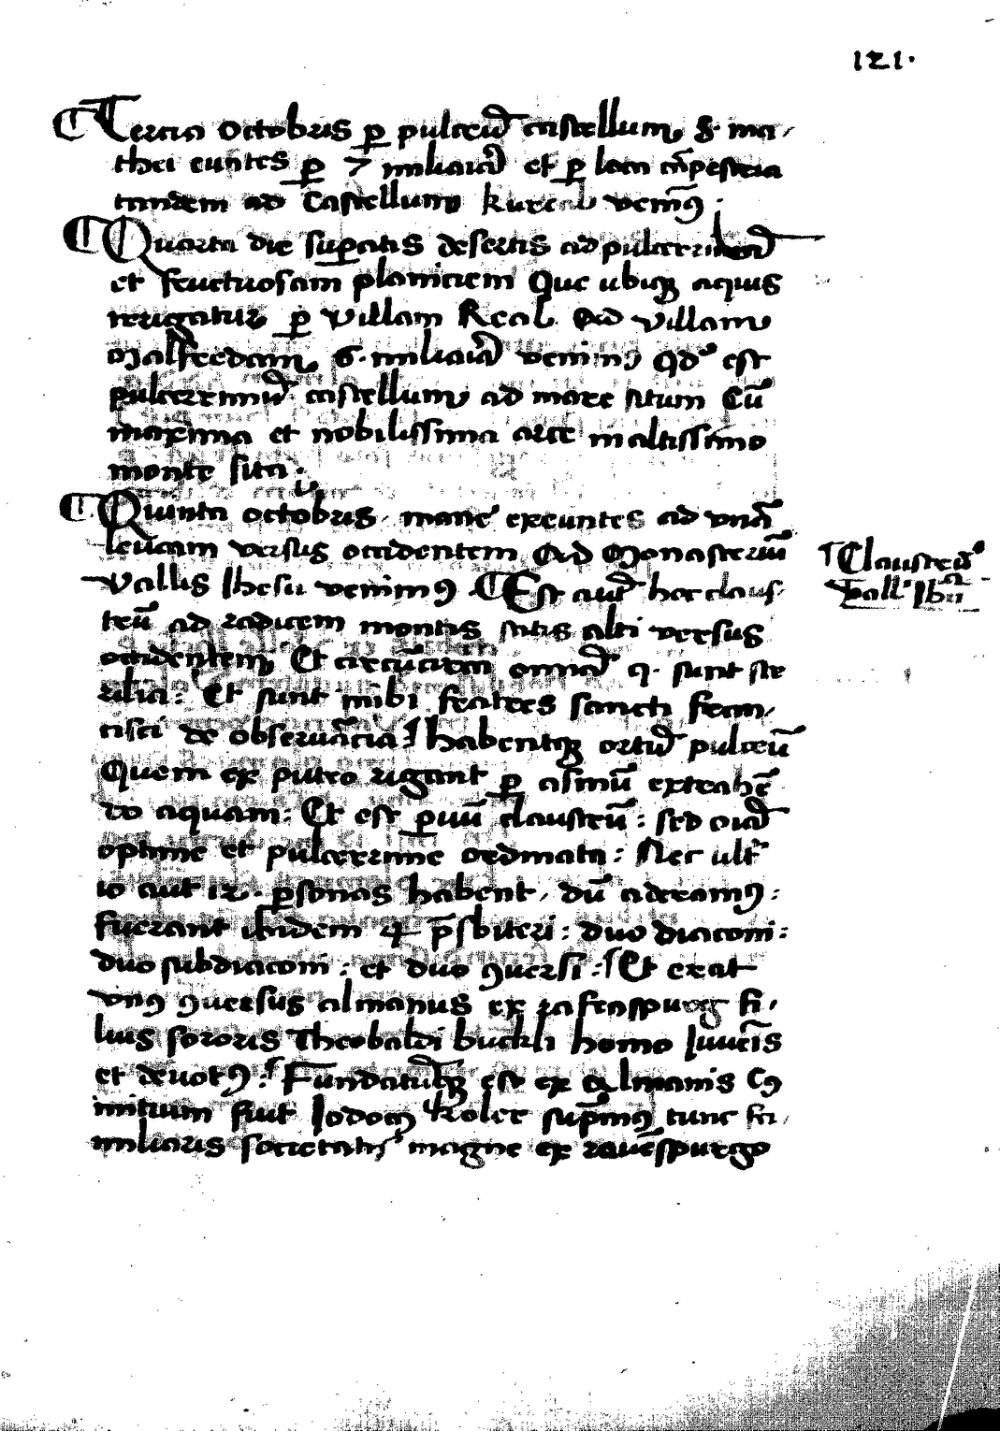 121.
Tercia octobris per pulcrum castellum S. ma-
thei euntes per 7 miliaria et per loca campestria
tandem ad castellum kureal venimus.
Quarta die superatis desertis ad pulcerrimam
et fructuosam planiciem que ubique aquis
rerigatur per villam Real. Ad villam
Malfredam 6. miliaria venimus quod est
pulcerrimum castellum ad mare situm cum
maxima et nobilissima arce in altissimo
monte sita:
Quinta octobris. mane exeuntes ad unam
leucam versus occidentem Ad Monasterium
Vallis Ihesu venimus. Est autem hoc claus-
trum ad radicem montis satis alti versus
occidentem. Et circumcirca omnia que sunt ste
rilia: Et sunt inibi fratres sancti fran-
cisci de observancia: habentque ortum pulcrum
Quem ex puteo rigant per asinum extrahen
do aquam: Et est parvum claustrum: sed omnia
optime et pulcerrime ordinata: Nec ultra
10 aut 12. personas habent. dum aderamus:
fuerant ibidem 4 presbiteri: duo diaconi:
duo subdiaconi: et duo conversi: Et erat
unus conversus almanus ex rafenspurg fi-
lius sororis Theobaldi buckli homo Iuvenis
et devotus: Fundatumque est ex Almanis Cuius
initium fuit Iodocus koler supremus tunc fa-
miliaris societatis magne ex ravenspurgo
Claustrum
Vallis Ihesu